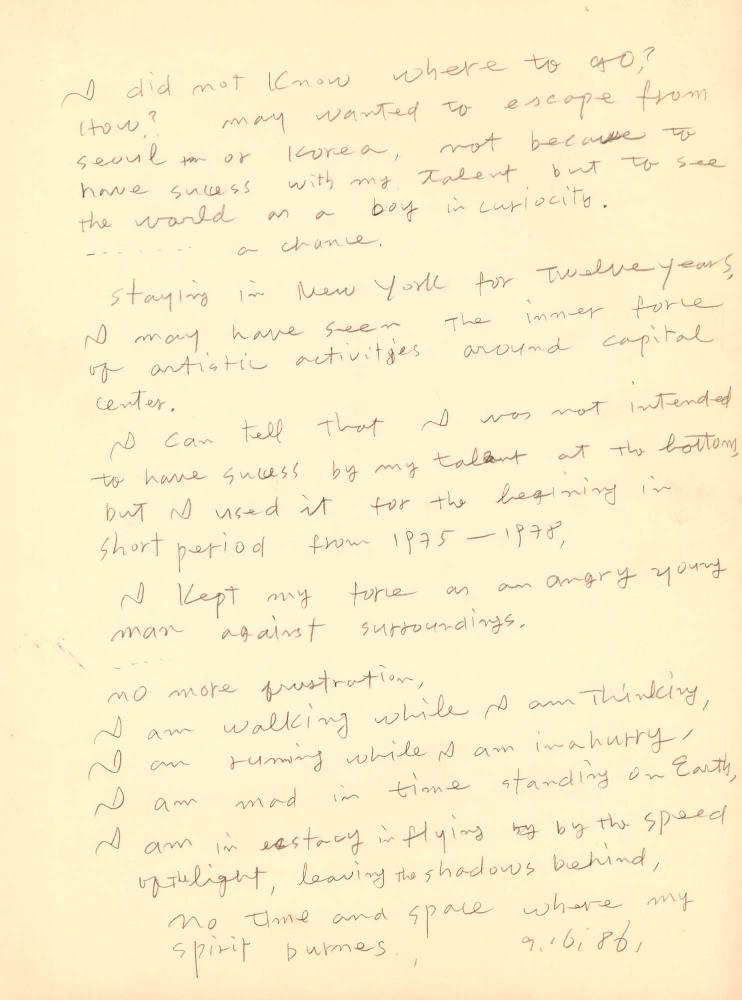 I did not know where to go?
How? may wanted to escape from
seoul or Korea, not because to
have sucess with my talent but to see
the world as a boy in curiocity.
- - - - - - - a chance.
staying in New York for Twelve years,
I may have seen The inner force
of artistic activities around capital
center.
I can tell That I was not intended
to have sucess by my talent at the bottom,
but I used it for the begining in
short period from 1975 – 1978,
I Kept my force as an angry young
man against surroundings.
- - - -
no more frustration,
I am walking while I am Thinking,
I am running while I am in a hurry,
I am mad in time standing on Earth,
I am in ecstacy in flying by by the speed
of the light, leaving the shadows behind,
no Time and space where my
spirit burnes., 9.16,86,